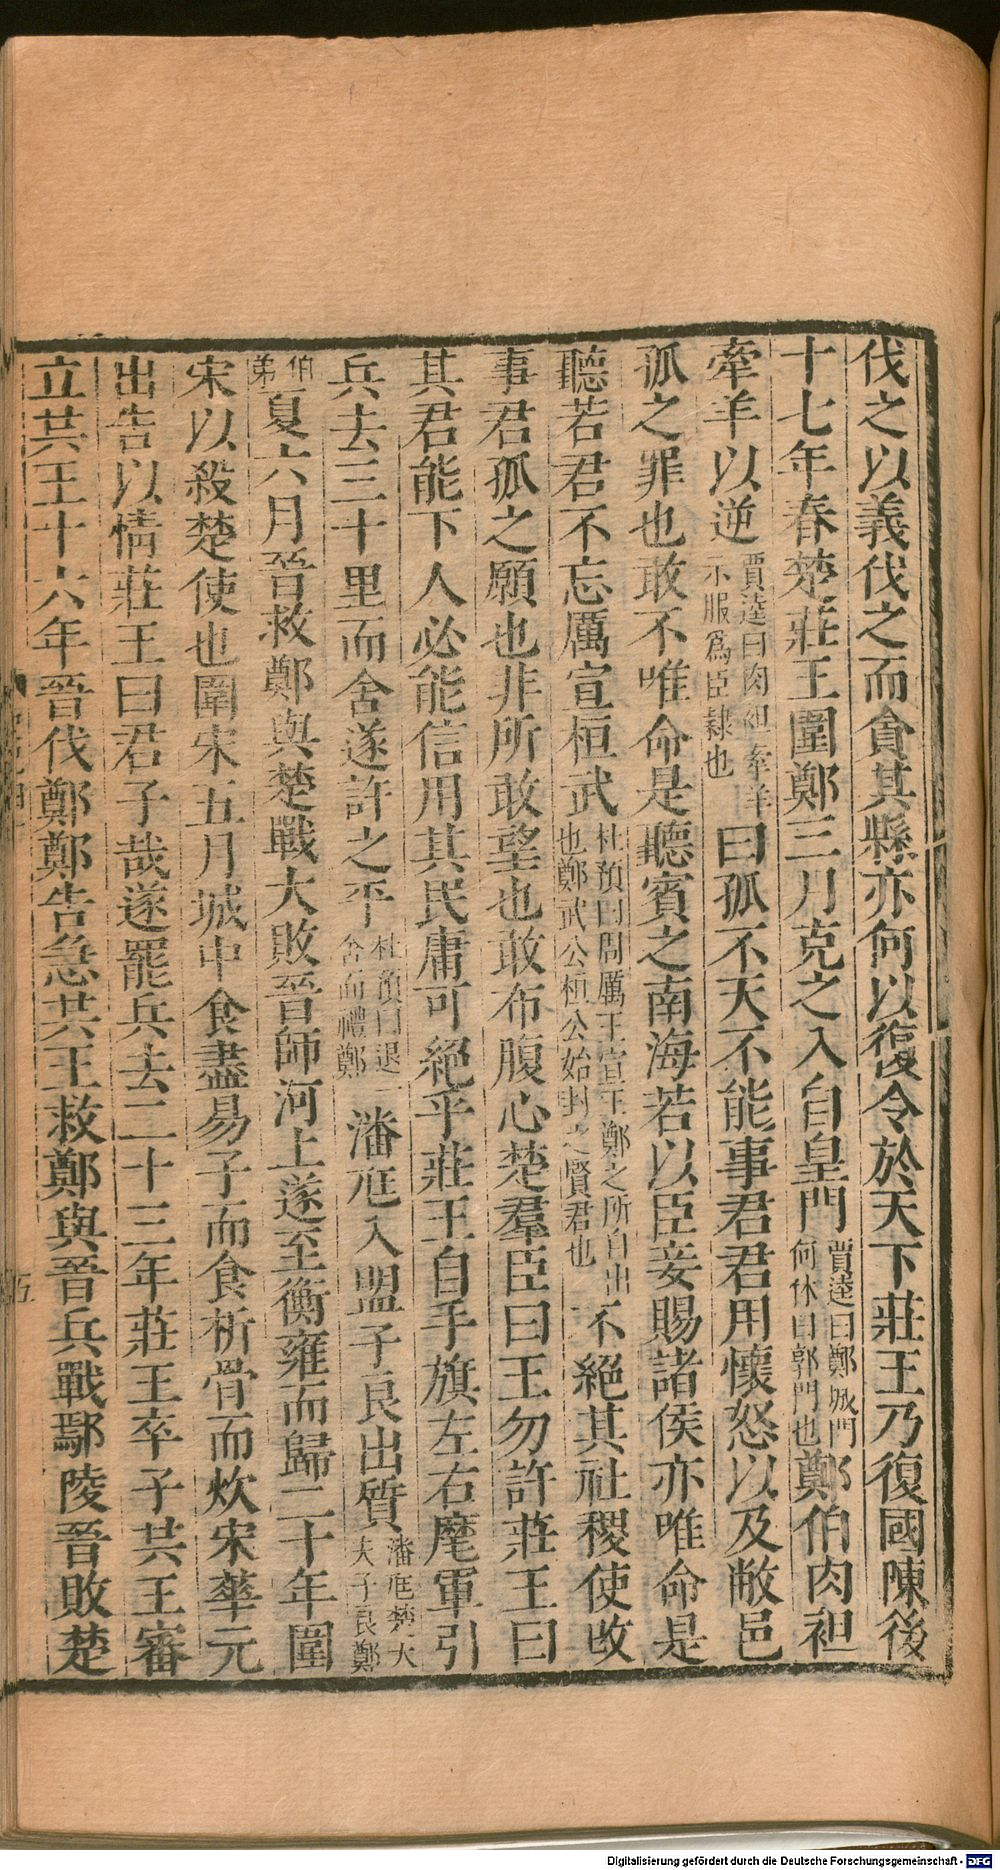 伐之以義伐之而貪其縣亦何以復令於天下莊王乃復國陳後
十七年春楚莊王圍鄭三月克之入自皇門賈逵曰鄭城門何休曰郭門也鄭伯肉袒
牽羊以逆賈逵曰肉袒牽羊示服爲臣隸也曰孤不天不能事君君用懷怒以及敝邑
孤之罪也敢不唯命是聽賓之南海若以臣妾賜諸侯亦唯命是
聽若君不忘厲宣桓武杜預曰周厲王宣王鄭之所自出也鄭武公桓公始封之賢君也不絕其社稷使改
事君孤之願也非所敢望也敢布腹心楚羣臣曰王勿許莊王曰
其君能下人必能信用其民庸可絕乎莊王自手旗左右麾軍引
兵去三十里而舍遂許之平杜預曰退一舍而禮鄭潘尪入盟子良出質潘尪楚大夫子良鄭
伯弟夏六月晉救鄭與楚戰大敗晉師河上遂至衡雍而歸二十年圍
宋以殺楚使也圍宋五月城中食盡易子而食析骨而炊宋華元
出告以情莊王曰君子哉遂罷兵去二十三年莊王卒子共王審
立共王十六年晉伐鄭鄭告急共王救鄭與晉兵戰鄢陵晉敗楚
五
Digitalisierung gefördert durch die Deutsche Forschungsgemeinschaft - DFG